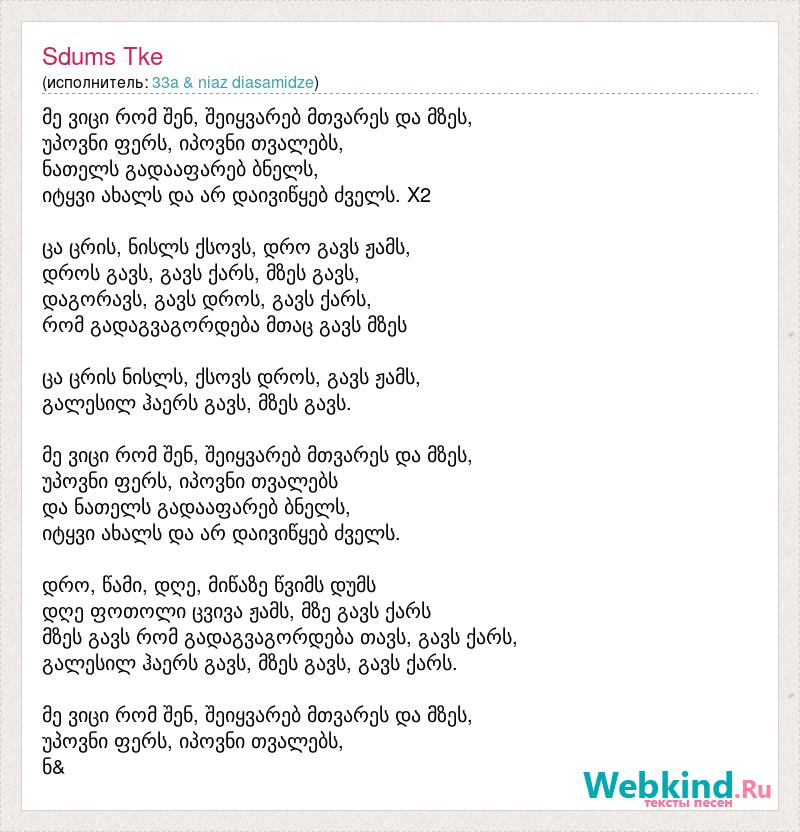 Sdums Tke
(исполнитель: 33a & niaz diasamidze)
მე ვიცი რომ შენ, შეიყვარებ მთვარეს და მზეს,
უპოვნი ფერს, იპოვნი თვალებს,
ნათელს გადააფარებ ბნელს,
იტყვი ახალს და არ დაივიწყებ ძველს. X2
ცა ცრის, ნისლს ქსოვს, დრო გავს ჟამს,
დროს გავს, გავს ქარს, მზეს გავს,
დაგორავს, გავს დროს, გავს ქარს,
რომ გადაგვაგორდება მთაც გავს მზეს
ცა ცრის ნისლს, ქსოვს დროს, გავს ჟამს,
გალესილ ჰაერს გავს, მზეს გავს.
მე ვიცი რომ შენ, შეიყვარებ მთვარეს და მზეს,
უპოვნი ფერს, იპოვნი თვალებს
და ნათელს გადააფარებ ბნელს,
იტყვი ახალს და არ დაივიწყებ ძველს.
დრო, წამი, დღე, მიწაზე წვიმს დუმს
დღე ფოთოლი ცვივა ჟამს, მზე გავს ქარს
მზეს გავს რომ გადაგვაგორდება თავს, გავს ქარს,
გალესილ ჰაერს გავს, მზეს გავს, გავს ქარს.
მე ვიცი რომ შენ, შეიყვარებ მთვარეს და მზეს,
უპოვნი ფერს, იპოვნი თვალებს,
ნ&
Webkind.Ru
тексты песен